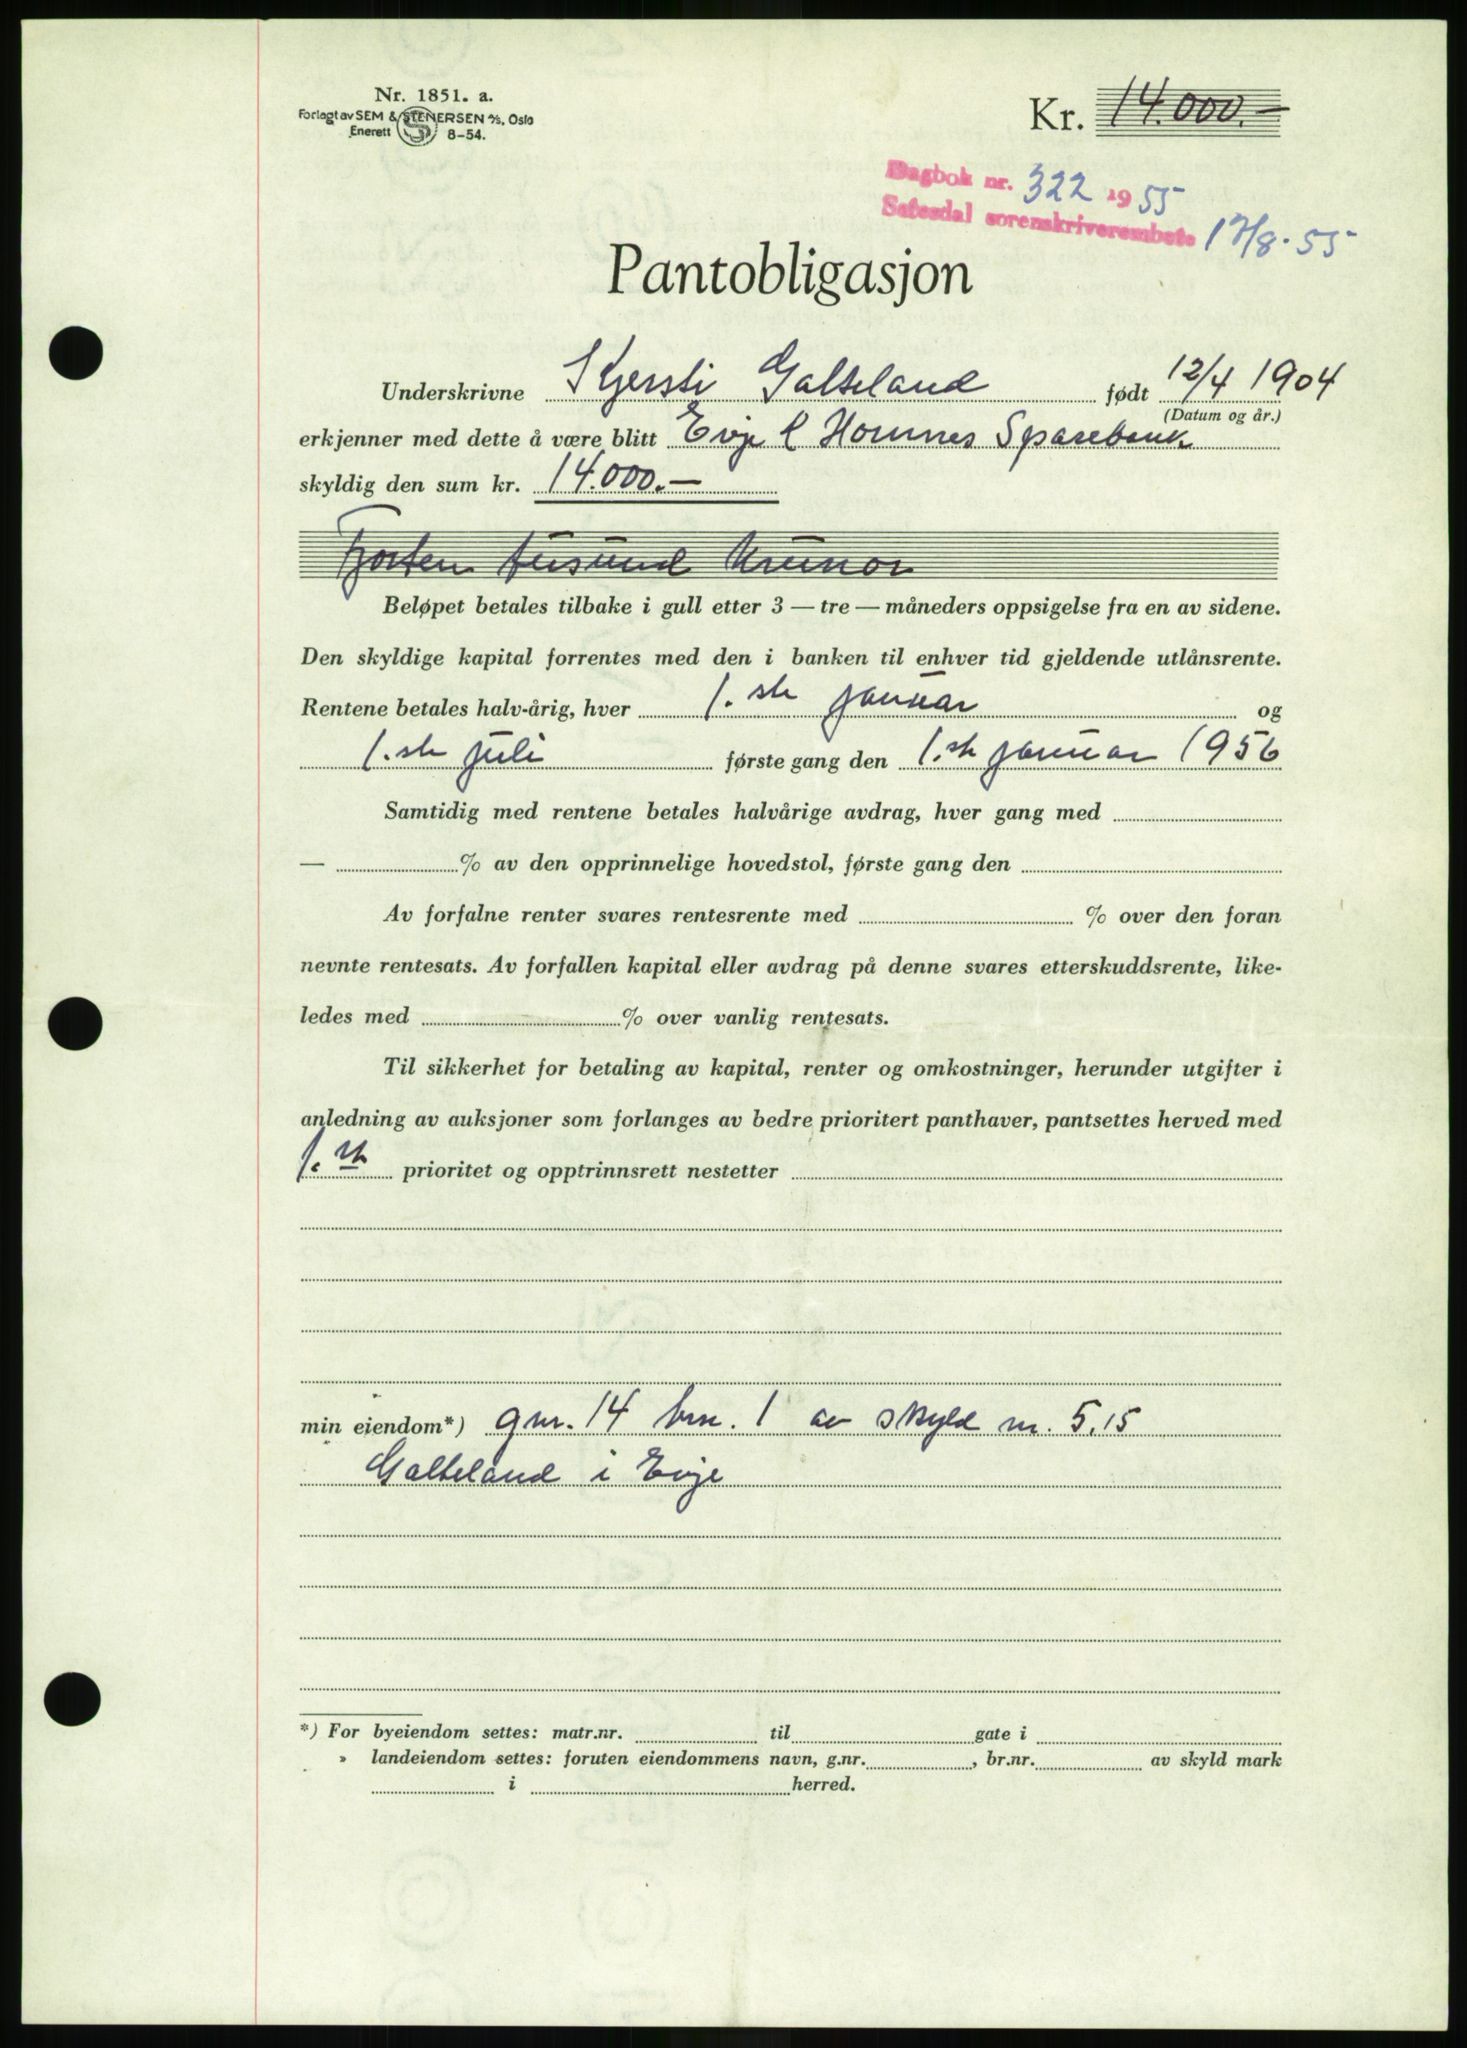 Nr. 1851. a.
Forlagt av SEM & STENERSEN A/S, Oslo
Enerett 8-54.
Kr. 14.000.-
Dagbok nr. 322 1955
Setesdal sorenskriverembete 17/8-55
Pantobligasjon
Underskrivne Kjersti Galteland født 12/4 1904
(Datum og år.)
erkjenner med dette å være blitt Evje & Hornnes Sparebank
skyldig den sum kr. 14.000.-
Fjorten tusund kronor
Beløpet betales tilbake i gull etter 3 — tre — måneders oppsigelse fra en av sidene.
Den skyldige kapital forrentes med den i banken til enhver tid gjeldende utlånsrente.
Rentene betales halv-årig, hver 1.ste januar og
1.ste juli første gang den 1.ste januar 1956
Samtidig med rentene betales halvårige avdrag, hver gang med
— % av den opprinnelige hovedstol, første gang den
Av forfalne renter svares rentesrente med % over den foran
nevnte rentesats. Av forfallen kapital eller avdrag på denne svares etterskuddsrente, like-
ledes med % over vanlig rentesats.
Til sikkerhet for betaling av kapital, renter og omkostninger, herunder utgifter i
anledning av auksjoner som forlanges av bedre prioritert panthaver, pantsettes herved med
1.ste prioritet og opptrinnsrett nestetter
min eiendom*) gnr. 14 brn. 1 av skyld m. 5,15
Galteland i Evje
*) For byeiendom settes: matr.nr. til gate i
» landeiendom settes: foruten eiendommens navn, g.nr. , br.nr. av skyld mark
i herred.